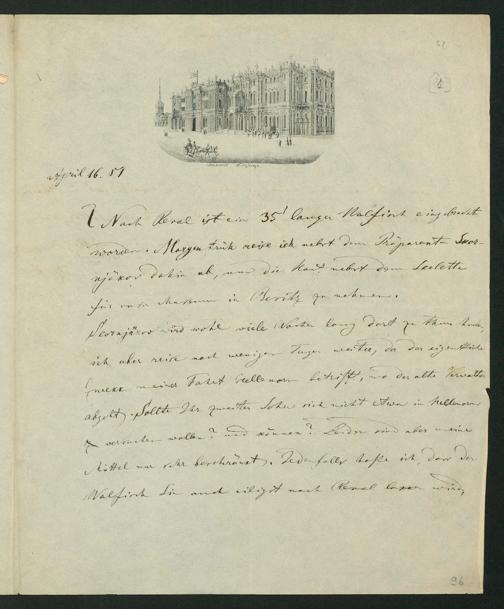 51
[1]
April 16. 59
Nach Reval ist ein 35' langer Wallfisch eingebracht
worden. Morgen früh reise ich nebst dem Präparante Skor-
njäkow dahin ab, um die Haut nebst dem Skelette
für unser Museum in Besitz zu nehmen.
Skornjäkow wird wohl viele Wochen lang dort zu thun haben,
ich aber reise nach wenigen Tagen weiter, da der eigentliche
Zweck meiner Fahrt Hellenorm betrifft, wo der alte Verwalter
abgeht. Sollte Ihr zweiter Sohn sich nicht etwa in Hellenorm
versuchen wollen? und können? Leider sind aber meine
Mittel nur sehr beschränkt. Jedenfalls hoffe ich, dass der
Wallfisch Sie auch eiligst nach Reval
96